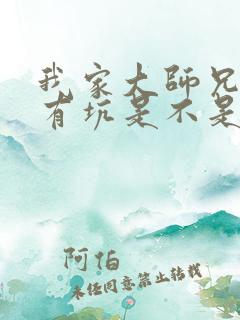 我家大师兄
有坑是不是
阿怕
未经同意禁止转载